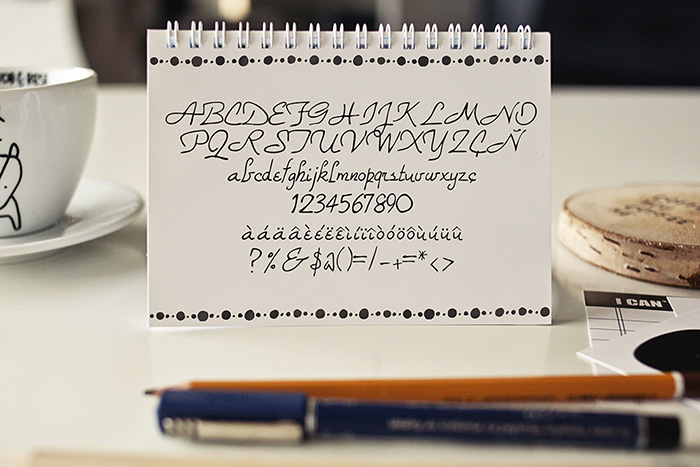 ABCDEFGHIJKLMNO
PQRSTUVWXYZÇÑ
abcdefghijklmnopqrstuvwxyzç
1234567890
àáäâèéëêìíïîòóöôùúüû
?%&$()=/-+=*<>
I CAN